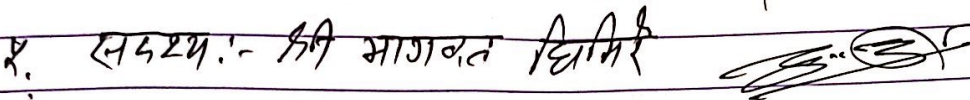 ५. सदश्य :- श्री भागवत घिमिरे